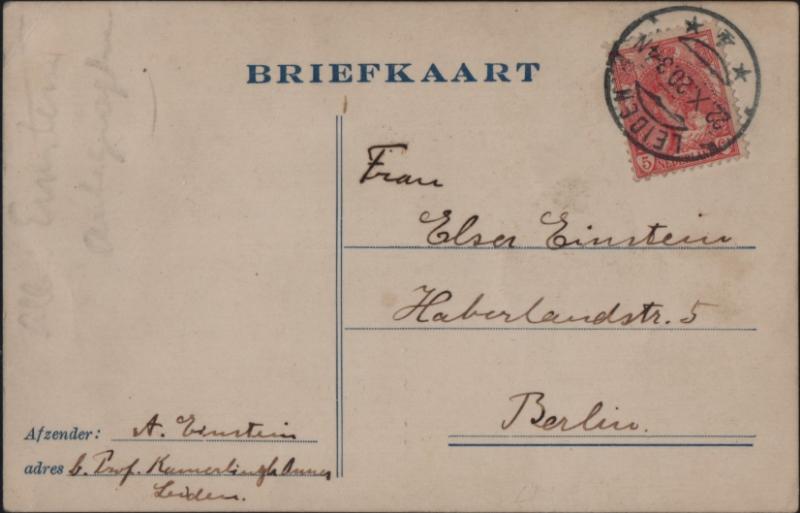 BRIEFKAART
LEIDEN
22.X.20 3-4 N
5 NEDERLAND
Frau
Elser Einstein
Haberlandstr. 5
Berlin.
Afzender: A. Einstein
adres b. Prof. Kamerlingh Onnes
Leiden.
Einstein